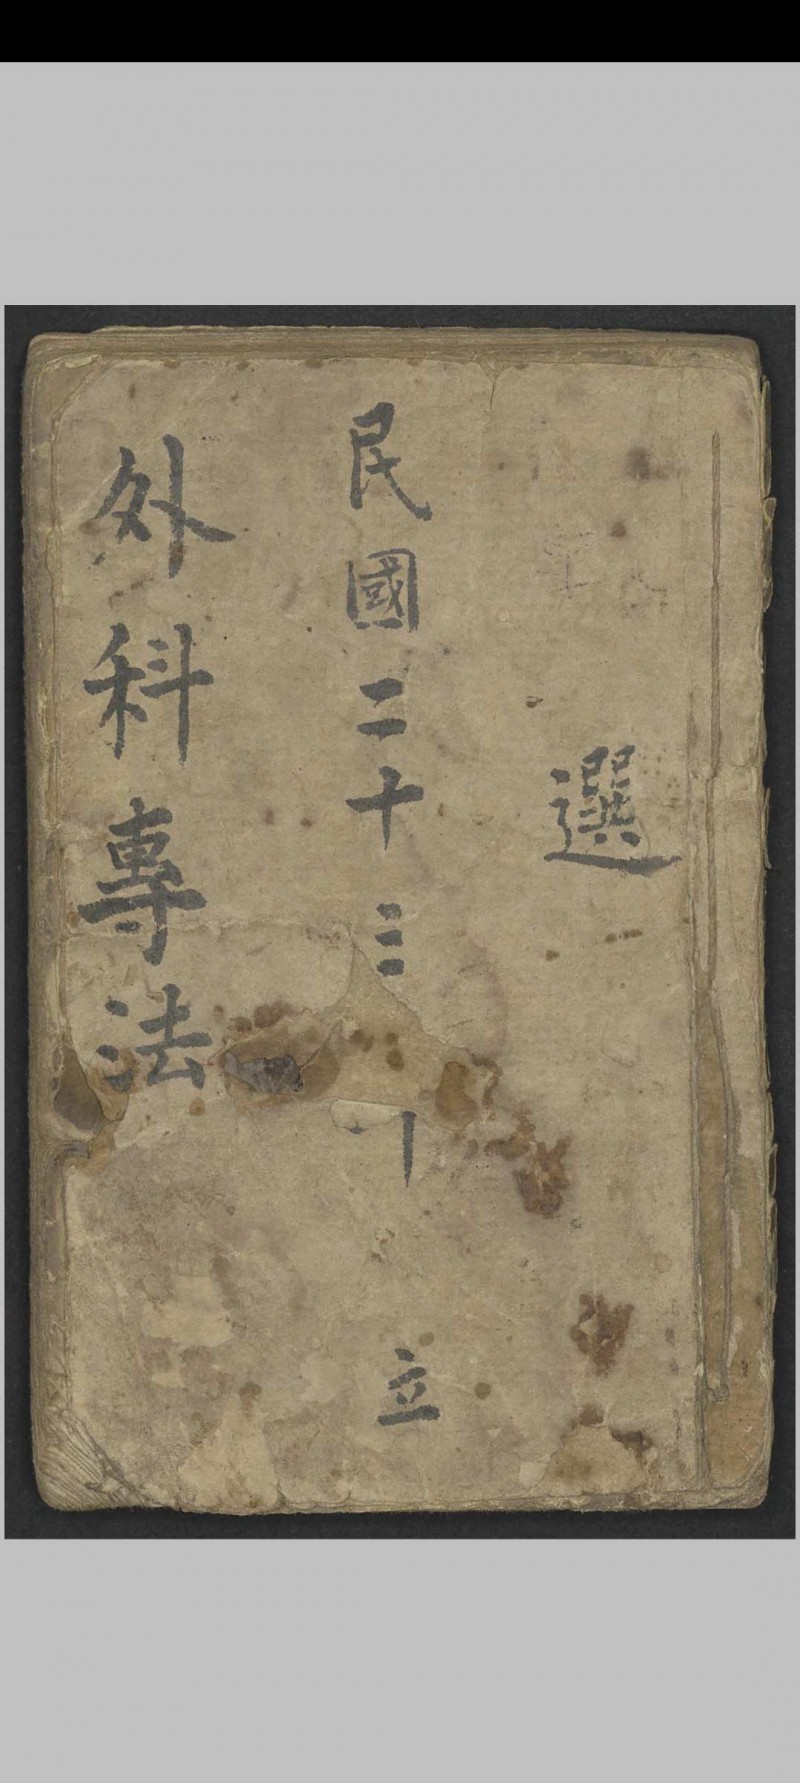 選
民國二十三 十 立
外科專法